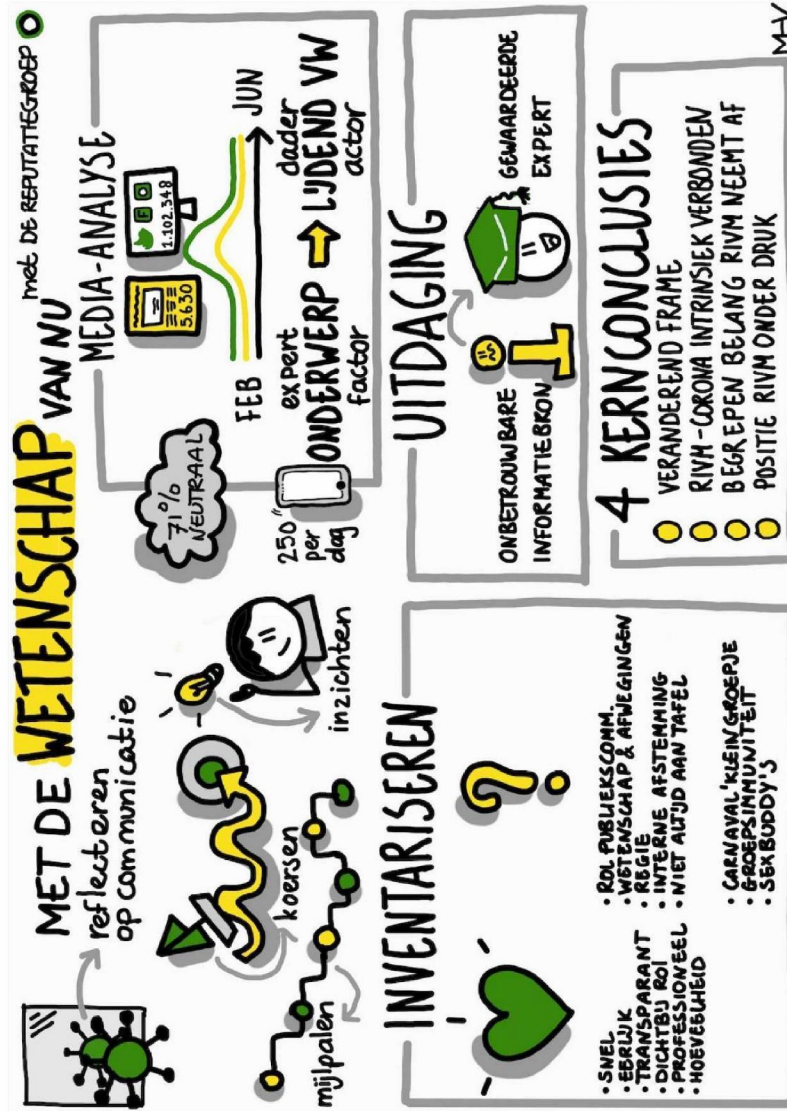 MET DE WETENSCHAP VAN NU
met DE REPUTATIEGROEP
reflecteren
op communicatie
koersen
mijlpalen
inzichten
MEDIA-ANALYSE
71%
NEUTRAAL
250"
per
dag
5.630
1.102.348
FEB
JUN
expert
dader
ONDERWERP
LIJDEND VW
factor
actor
INVENTARISEREN
• SNEL
• EERLIJK
• TRANSPARANT
• DICHTBIJ ROL
• PROFESSIONEEL
• HOEVEELHEID
?
• ROL PUBLIEKSCOMM.
• WETENSCHAP & AFWEGINGEN
• REGIE
• INTERNE AFSTEMMING
• NIET ALTIJD AAN TAFEL
• CARNAVAL 'KLEIN GROEPJE
• GROEPSIMMUNITEIT
• SEXBUDDY'S
UITDAGING
ONBETROUWBARE
INFORMATIEBRON
i
GEWAARDEERDE
EXPERT
4 KERNCONCLUSIES
VERANDEREND FRAME
RIVM-CORONA INTRINSIEK VERBONDEN
BEGREPEN BELANG RIVM NEEMT AF
POSITIE RIVM ONDER DRUK